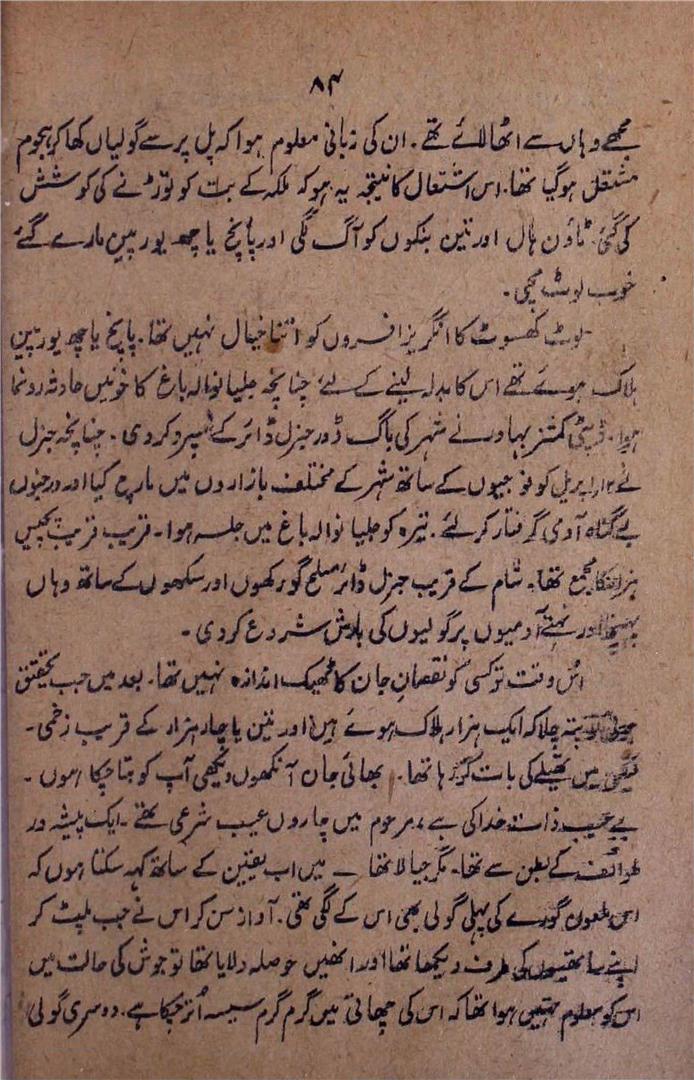 ۸۴
مجھے وہاں سے اٹھا لائے تھے۔ ان کی زبانی معلوم ہوا کہ پل پر سے گولیاں کھا کر ہجوم
مشتعل ہوگیا تھا۔ اس اشتعال کا نتیجہ یہ ہو کہ ملکہ کے بت کو توڑنے کی کوشش
کی گئی۔ ٹاؤن ہال اور تین بنکوں کو آگ لگی اور پانچ یا چھ یورپین مارے گئے
خوب لوٹ مچی۔
لوٹ کھسوٹ کا انگریز افسروں کو اتنا خیال نہیں تھا۔ پانچ یا چھ یورپین
ہلاک ہوئے تھے اس کا بدلہ لینے کے لئے چنانچہ جلیانوالہ باغ کا خونیں حادثہ رونما
ہوا۔ ڈپٹی کمشنر بہادر نے شہر کی باگ ڈور جنرل ڈائر کے سپرد کر دی۔ چنانچہ جنرل
نے اپریل کو فوجیوں کے ساتھ شہر کے مختلف بازاروں میں مارچ کیا اور درجنوں
بے گناہ آدمی گرفتار کر لئے۔ تیرہ کو جلیانوالہ باغ میں جلسہ ہوا۔ قریب قریب پچیس
ہزار کا مجمع تھا۔ شام کے قریب جنرل ڈائر مسلح گورکھوں اور سکھوں کے ساتھ وہاں
پہنچا اور نہتے آدمیوں پر گولیوں کی بارش شروع کر دی۔
اس وقت تو کسی کو نقصانِ جان کا ٹھیک اندازہ نہیں تھا۔ بعد میں جب تحقیق
ہوئی تو پتہ چلا کہ ایک ہزار ہلاک ہوئے ہیں اور تین یا چار ہزار کے قریب زخمی۔
میں تھیلے کی بات کر رہا تھا۔ بھائی جان آنکھوں دیکھی آپ کو بتا چکا ہوں۔
بے عیب ذات خدا کی ہے، مرحوم میں چاروں عیب شرعی تھے۔ ایک پیشہ ور
طوائف کے بطن سے تھا۔ مگر جیالا تھا ـ میں اب یقین کے ساتھ کہہ سکتا ہوں کہ
اس ملعون گورے کی پہلی گولی بھی اس کے لگی تھی۔ آواز سن کر اس نے جب پلٹ کر
اپنے ساتھیوں کی طرف دیکھا تھا اور انھیں حوصلہ دلایا تھا تو جوش کی حالت میں
اس کو معلوم نہیں ہوا تھا کہ اس کی چھاتی میں گرم گرم سیسہ اُتر چکا ہے۔ دوسری گولی